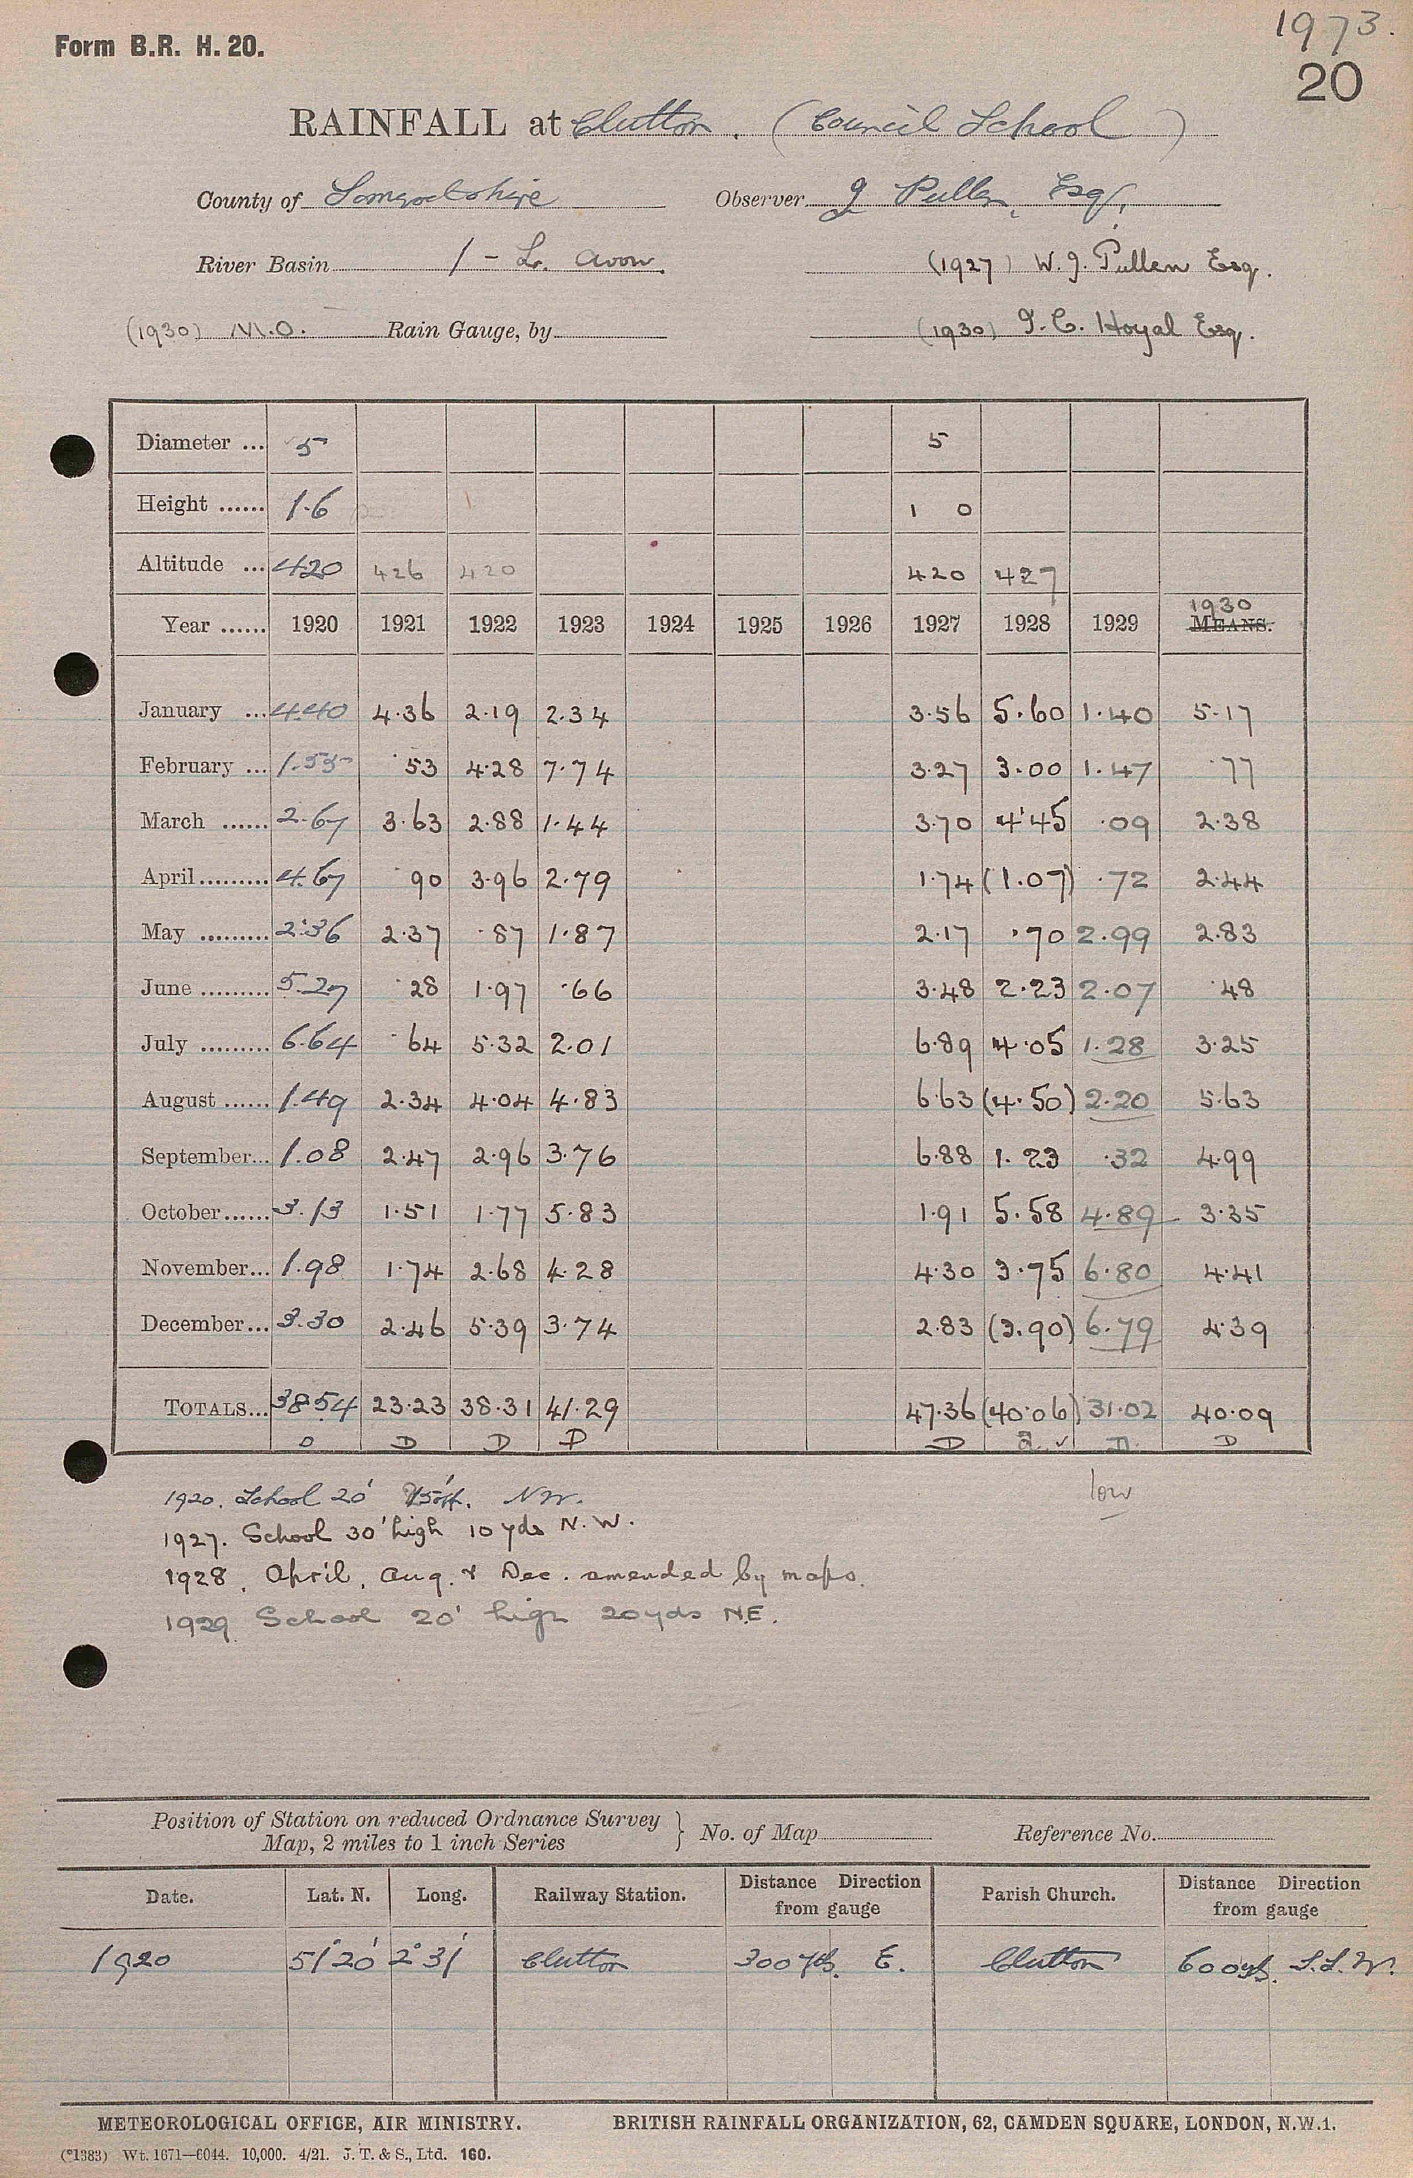 1973.
Form B.R. H. 20.
20
RAINFALL at Clutton. (Council School)
County of Somersetshire Observer J Pullen, Esq.
River Basin 1 - Lr. Avon. (1927) W. J. Pullen Esq.
(1930) M.O. Rain Gauge, by (1930) I. C. Hoyal Esq.
Diameter ... 5 5
Height ...... 1.6 1 0
Altitude ... 420 426 420 420 427
1930
Year ...... 1920 1921 1922 1923 1924 1925 1926 1927 1928 1929 MEANS.
January ... 4.40 4.36 2.19 2.34 3.56 5.60 1.40 5.17
February ... 1.55 .53 4.28 7.74 3.27 3.00 1.47 .77
March ...... 2.67 3.63 2.88 1.44 3.70 4.45 .09 2.38
April ......... 4.67 .90 3.96 2.79 1.74 (1.07) .72 2.44
May ......... 2.36 2.37 .87 1.87 2.17 .70 2.99 2.83
June ......... 5.27 .28 1.97 .66 3.48 2.23 2.07 .48
July ......... 6.64 .64 5.32 2.01 6.89 4.05 1.28 3.25
August ...... 1.49 2.34 4.04 4.83 6.63 (4.50) 2.20 5.63
September... 1.08 2.47 2.96 3.76 6.88 1.23 .32 4.99
October...... 3.13 1.51 1.77 5.83 1.91 5.58 4.89 3.35
November... 1.98 1.74 2.68 4.28 4.30 3.75 6.80 4.41
December... 3.30 2.46 5.39 3.74 2.83 (3.90) 6.79 4.39
TOTALS... 38.54 23.23 38.31 41.29 47.36 (40.06) 31.02 40.09
D D D D D a ✓ D D
low
1920. School 20' N.W.
1927. School 30' high 10 yds N.W.
1928. April, Aug. & Dec. amended by maps.
1929 School 20' high 20yds N.E.
Position of Station on reduced Ordnance Survey
Map, 2 miles to 1 inch Series } No. of Map Reference No.
Date. Lat. N. Long. Railway Station. Distance Direction from gauge Parish Church. Distance Direction from gauge
1920 51° 20' 2° 31' Clutton 300 yds. E. Clutton 600 yds. S.S.W.
METEOROLOGICAL OFFICE, AIR MINISTRY. BRITISH RAINFALL ORGANIZATION, 62, CAMDEN SQUARE, LONDON, N.W.1.
(*1383) Wt. 1671—6044. 10,000. 4/21. J. T. & S., Ltd. 160.